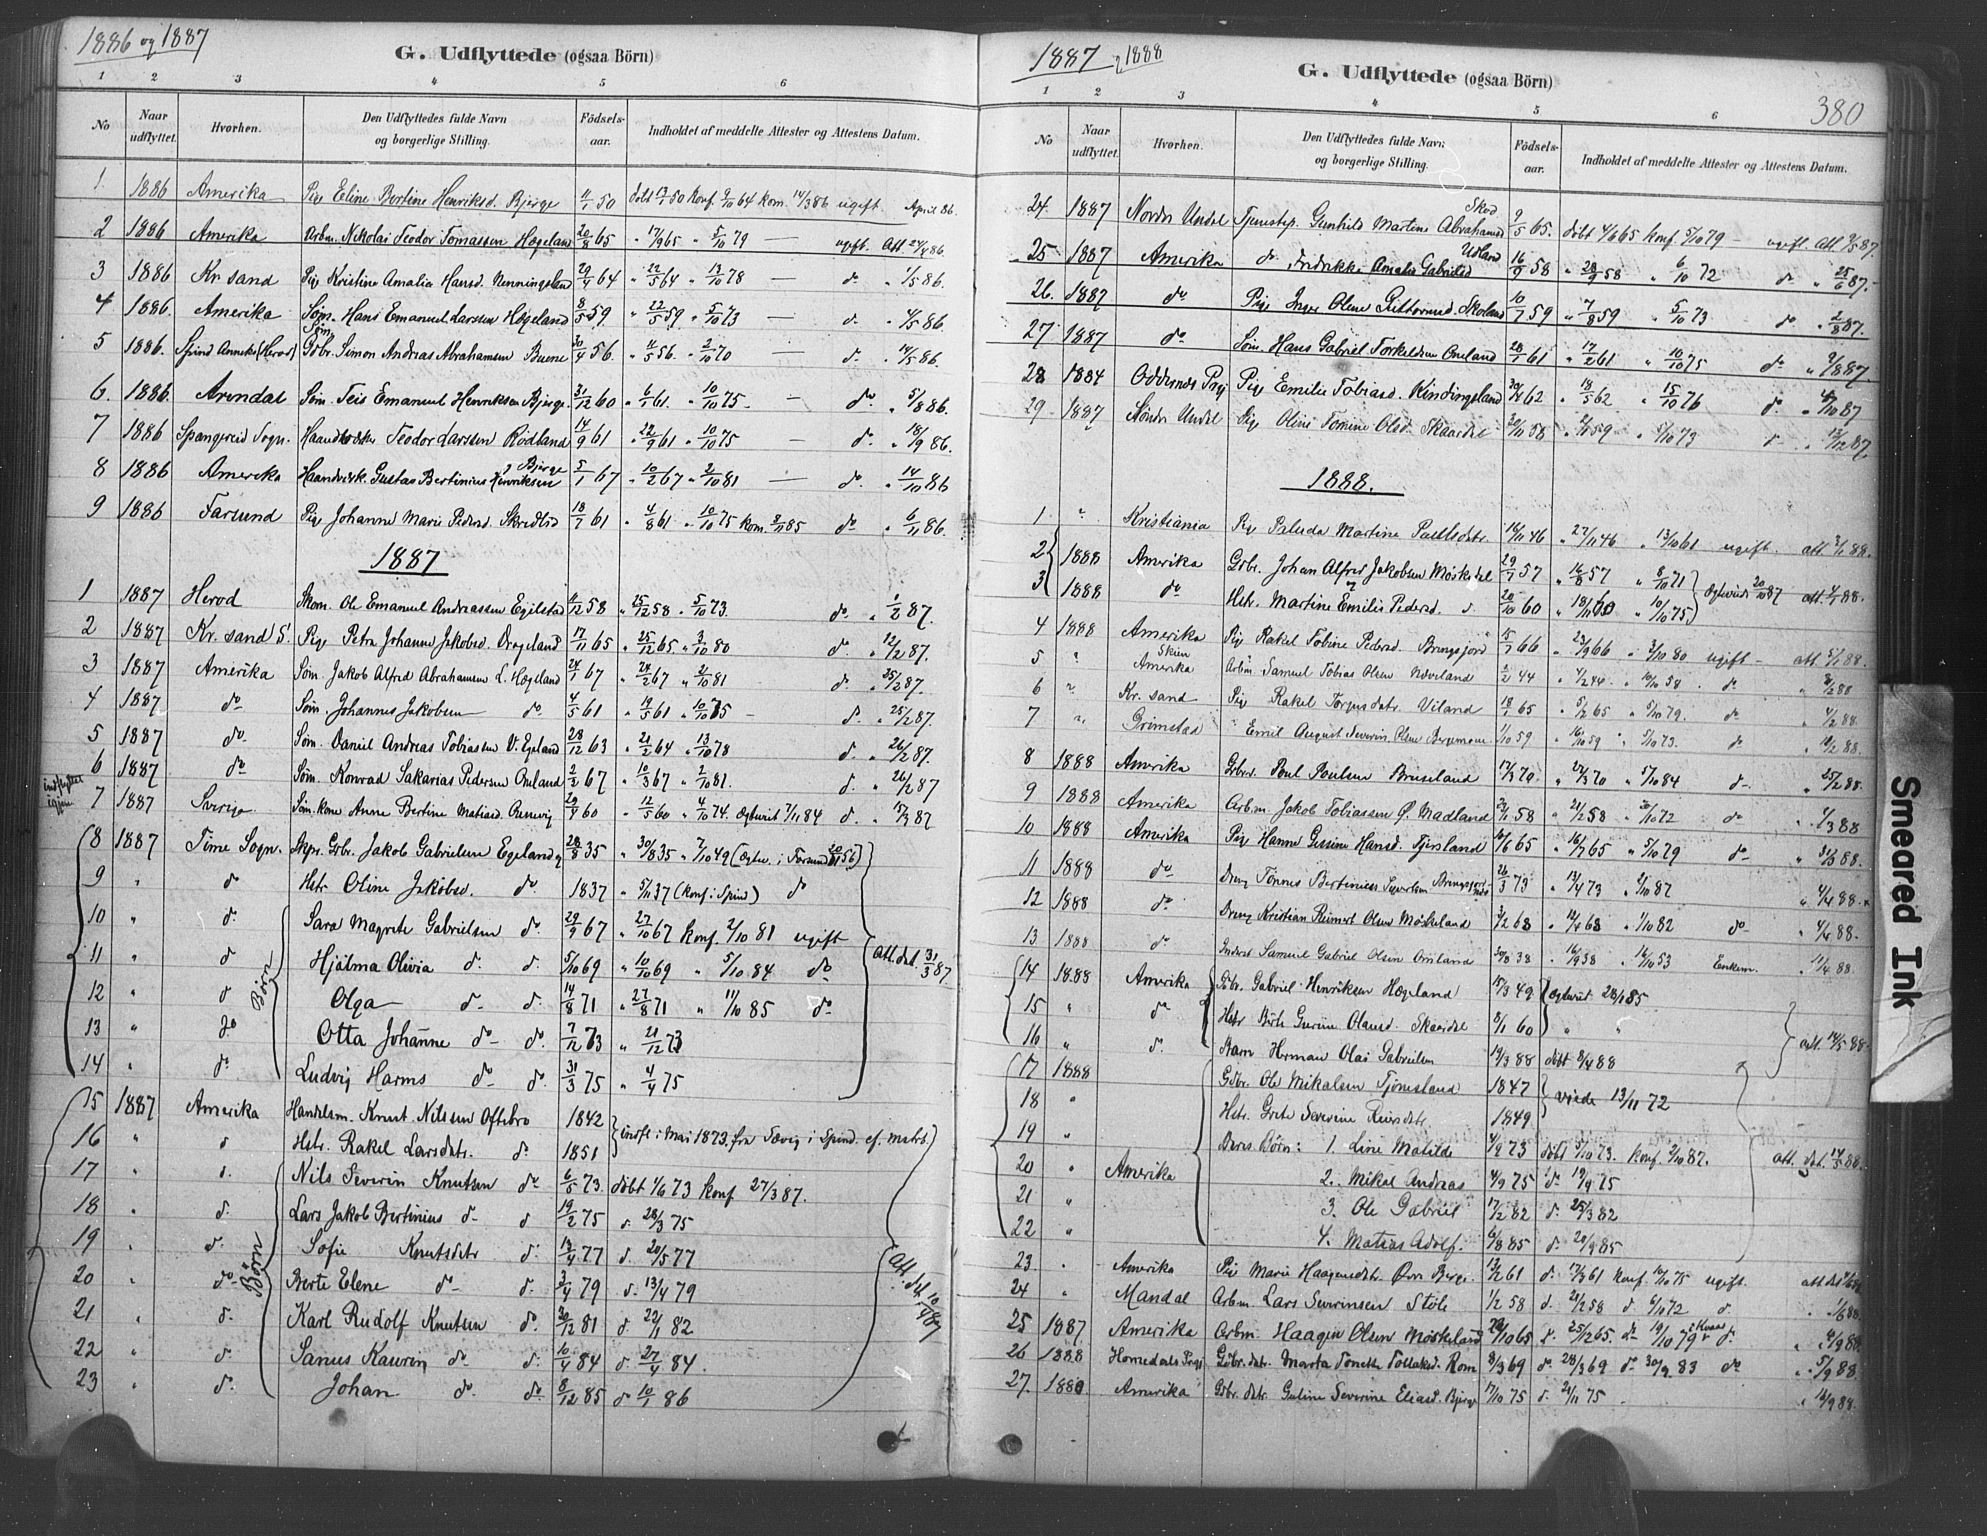 1886 og 1887
G. Udflyttede (ogsaa Börn)
1 2 3 4 5 6
No
Naar udflyttet.
Hvorhen.
Den Udflyttedes fulde Navn og borgerlige Stilling.
Födsels-aar.
Indholdet af meddelte Attester og Attestens Datum.
1 1886 Amerika Pige Eline Bertine Henriksd. Bjerge 11/1 50 döbt 13/1 50 konf. 9/10 64 kom. 14/3 86 ugift April 86.
2 1886 Amerika Arbm. Nikolai Teodor Tomassen Hægeland 20/8 65 " 17/9 65 " 5/10 79 — ugift. Att. 24/4 86.
3 1886 Kr.sand Pige Kristine Amalia Hansd. Nenningsland 29/4 64 " 22/5 64 " 13/10 78 — do. " 1/5 86.
4 1886. Amerika Söm. Hans Emanuel Larssen Hægeland 8/5 59 " 22/5 59 " 5/10 73 — d. " 4/5 86.
5 1886. Spind Anneks (Herod) Gbr. Söm. Simon Andreas Abrahamsen Buene 30/4 56 " 11/5 56. " 2/10 70 — do. " 14/5 86.
6. 1886. Arendal Söm. Teis Emanuel Henriksen Bjerge 31/12 60 " 6/1 61. " 10/10 75. — do. " 5/8 86.
7 1886 Spangereid Sogn. Teodor Larssen Rödland 14/9 61 " 22/9 61 " 10/10 75 — do. " 18/9 86.
8 1886 Amerika Haandverk. Gustav Bertinius Henriksen Bjerge 5/1 67 " 10/2 67 " 2/10 81 — do. " 14/10 86
9 1886 Farsund Pige Johanne Marie Pedersd. Skredlid 18/7 61 " 4/8 61 " 10/10 75 kom. 85 do " 6/11 86.
1887
1 1887 Herod Skom. Ole Emanuel Andreassen Egilstad 11/12 58 " 25/12 58 " 5/10 73. do. " 1/2 87.
2 1887 Kr.sand S. Pige Petra Johanne Jakobsd. Drageland 17/11 65 " 25/12 65 " 3/10 80 do. " 12/2 87.
3 1887 Amerika Söm. Jakob Alfred Abrahamsen L. Hægeland 24/1 67 " 24/2 67 " 2/10 81 d. " 25/2 87.
4 1887 do Söm. Johannes Jakobsen do. 4/5 61 " 19/5 61 " 10/10 75 — d. " 25/2 87.
5 1887 do. Söm. Daniel Andreas Tobiassen V. Egeland 28/12 63 " 21/2 64 " 13/10 78 d. " 26/2 87.
6 1887 do Söm. Konrad Sakarias Pedersen Omland 2/2 67 " 10/3 67 " 2/10 81. d. " 26/2 87
indflyttet igjen
7 1887 Sverige Söm.kone Anne Bertine Matiasd. 29/4 60 " 12/5 60 " 4/10 74. Egteviet 7/11 84 d. " 15/3 87
8 1887 Time Sogn. Skpr. Gbr. Jakob Gabrielsen Egeland 28/8 35 " 30/8 35 " 7/10 49 (Egtev. i Farsund 56)
9 " d Hstr Oline Jakobsd. do. 1837 " 5/11 37 (konf. i Spind) d
10 " d. Sara Magrete Gabrielsen do. 29/9 67 " 27/10 67 konf. 2/10 81 ugift
11 " d Hjalma Olivia d. d. 5/10 69 " 10/10 69 " 5/10 84 do
12 " d Olga — d. d. 14/8 71 " 27/8 71 " 11/10 85 do
13 " do Otta Johanne do do. 7/12 73 " 21/12 73
14 " do. Ludvig Harms do do. 31/3 75 " 4/4 75
Börn
Att. dat. 31/3 87
15 1887 Amerika Handelsm. Knut Nilssen Oftebro 1842
16 " d Hstr. Rakel Larsdatr. do 1851
indfl. i Mai 1873 fra Sævig i Spind. cf. matr.
17 " d. Nils Severin Knutsen do 6/5 73. döbt 1/6 73 konf 27/3 87.
18 " d. Lars Jakob Bertinius d. d 19/2 75 d. 28/3 75
19 " d. Sofie Knutsdatr d. 13/4 77 d. 20/5 77
20 " do Berte Elene do d. 3/4 79 d. 13/4 79
21 " d. Karl Rudolf Knutsen do. 30/12 81 d 22/1 82
22 " d. Sanus Kaurin do d. 10/4 84 d 27/4 84.
23 " d. Johan do do 8/12 85 d 10/1 86
Börn
Att. dat. 10/4 87
1887 og 1888
G. Udflyttede (ogsaa Börn)
380
1 2 3 4 5 6
No
Naar udflyttet.
Hvorhen.
Den Udflyttedes fulde Navn og borgerlige Stilling.
Födsels-aar.
Indholdet af meddelte Attester og Attestens Datum.
24. 1887 Nordr Undal Tjenstep. Gunhild Martine Abrahamsd Skod 9/5 65. döbt 4/6 65 konf. 5/10 79 — ugift att 2/5 87.
25. 1887 Amerika d. Fredrikke Amalie Gabrielsd Udland 16/9 58 " 28/9 58 " 6/10 72 do " 25/6 87.
26. 1887 do. Pige Inger Olene Guttormsd. Skoland 10/7 59 " 7/8 59 " 5/10 73 do " 2/8 87.
27. 1887 do Söm. Hans Gabriel Torkeldsen Omland 28/1 61 " 17/2 61 " 10/10 75 do " 9/8 87.
28 1884 Oddernes Prgj Pige Emilie Tobiasd. Kindingsland 30/4 62 " 18/5 62 " 15/10 76 d. " /10 87
29. 1887 Söndr Undal Pige Oline Tomine Olsd. Skaardal 30/11 58 " 2/1 59 " 5/10 73 d " 13/12 87.
1888.
1 " Kristiania Pige Palida Martine 14/11 46 " 27/11 46 " 13/10 61 ugift. att 3/1 88.
2 1888 Amerika Gbr. Johan Alfred Jakobsen Möskedal 29/7 57 " 16/8 57 " 8/10 71
3 1888 do Hstr. Martine Emilie Pedersd. d. 20/10 60 " 18/11 60 " 10/10 75
Egteviede 20/10 87 att. 88.
4 1888 Amerika Pige Rakel Tobine Pedersd. Bringsjord 15/7 66 " 23/9 66 " 3/10 80 ugift — att. 5/1 88.
5 " Skien Amerika Arbm. Samuel Tobias Olsen Növeland 2/2 44 " 4/2 44. " 10/10 58 . do " /2 88
6 " Kr.sand Pige Rakel Torgersdatr. Viland 18/1 65 " 5/2 65 " 5/10 79. do " 4/2 88.
7 " Grimstad " Emil August Severin Olsen 1/10 59 " 16/10 59 " 5/10 73. do " 10/2 88.
8 1888 Amerika Gbr. Poul Poulsen Bruseland 17/3 70. " 27/3 70 " 5/10 84 d— " 25/2 88.
9 1888 Amerika Arbm. Jakob Tobiassen Ø. Madland 58 " 21/2 58 " 20/10 72 do " 1/3 88
10 1888 Amerika Pige Hanne Gesine Hansd. Tjersland 10/6 65 " 16/7 65 " 5/10 79 do— " 31/3 88.
11 1888 do Dreng Tönnes Bertinius Bringsjord 26/3 73 " 13/4 73 " 2/10 87 " 4/4 88.
12 1888 do. Dreng Kristian Reinert Olsen Möskeland 3/2 68 " 12/4 68 " 1/10 82 do— " 4/4 88.
13 1888 do Inderst Samuel Gabriel Olsen Omland 30/8 38 " 16/9 38 " 16/10 53 Enkem. " 11/4 88.
14 1888 Amerika Gbr. Gabriel Henriksen Hægeland 17/3 49 Egteviet 28/1 85
15 " do Hstr Berte Gurine Olausd. Skaardal 8/1 60 " "
16 " d. Barn Herman Olai Gabrielsen 19/3 88 döbt 8/4 88
att. 14/5 88.
17 1888 Gbr. Ole Mikalsen Tjomsland 1847
18 " Hstr. Grete Severine Reiersdtr 1849
viede 13/11 72
19 " Deres Börn: 1. Line Matilde 4/9 73 döbt 5/10 73. konf. 2/10 87.
20 " Amerika 2. Mikal Andreas 4/9 75 do 19/9 75
21 " 3. Ole Gabriel 17/2 82 d. 25/3 82
22 " 4. Matias Adolf. 6/8 85 d. 20/9 85
att. dat. 14/5 88.
23. " Amerika Pige Marie Haagensdtr. Övr. Berge. 13/2 61 d. 17/3 61 konf. 10/10 75 ugift.
24 " Mandal Arbm Lars Severinsen Stöle 1/2 58 d. 21/2 58 d 6/10 72 d " 1/6 88.
25 1887. Amerika Arbm. Haagen Olsen Möskeland /10 65 d. 25/12 65 do 19/10 79 i Kvaas d. " 4/9 88.
26 1888 Homedals Prgj Gbr.dtr. Marta Tonette Tollaksd. Rom 8/3 69 do 28/3 69 do 30/9 83 do " 5/9 88.
27. 1888 Amerika Gbr.datr Guline Severine Eliasd. Bjerge 17/10 75 d. 21/11 75 " 12/9 88.
Smeared Ink